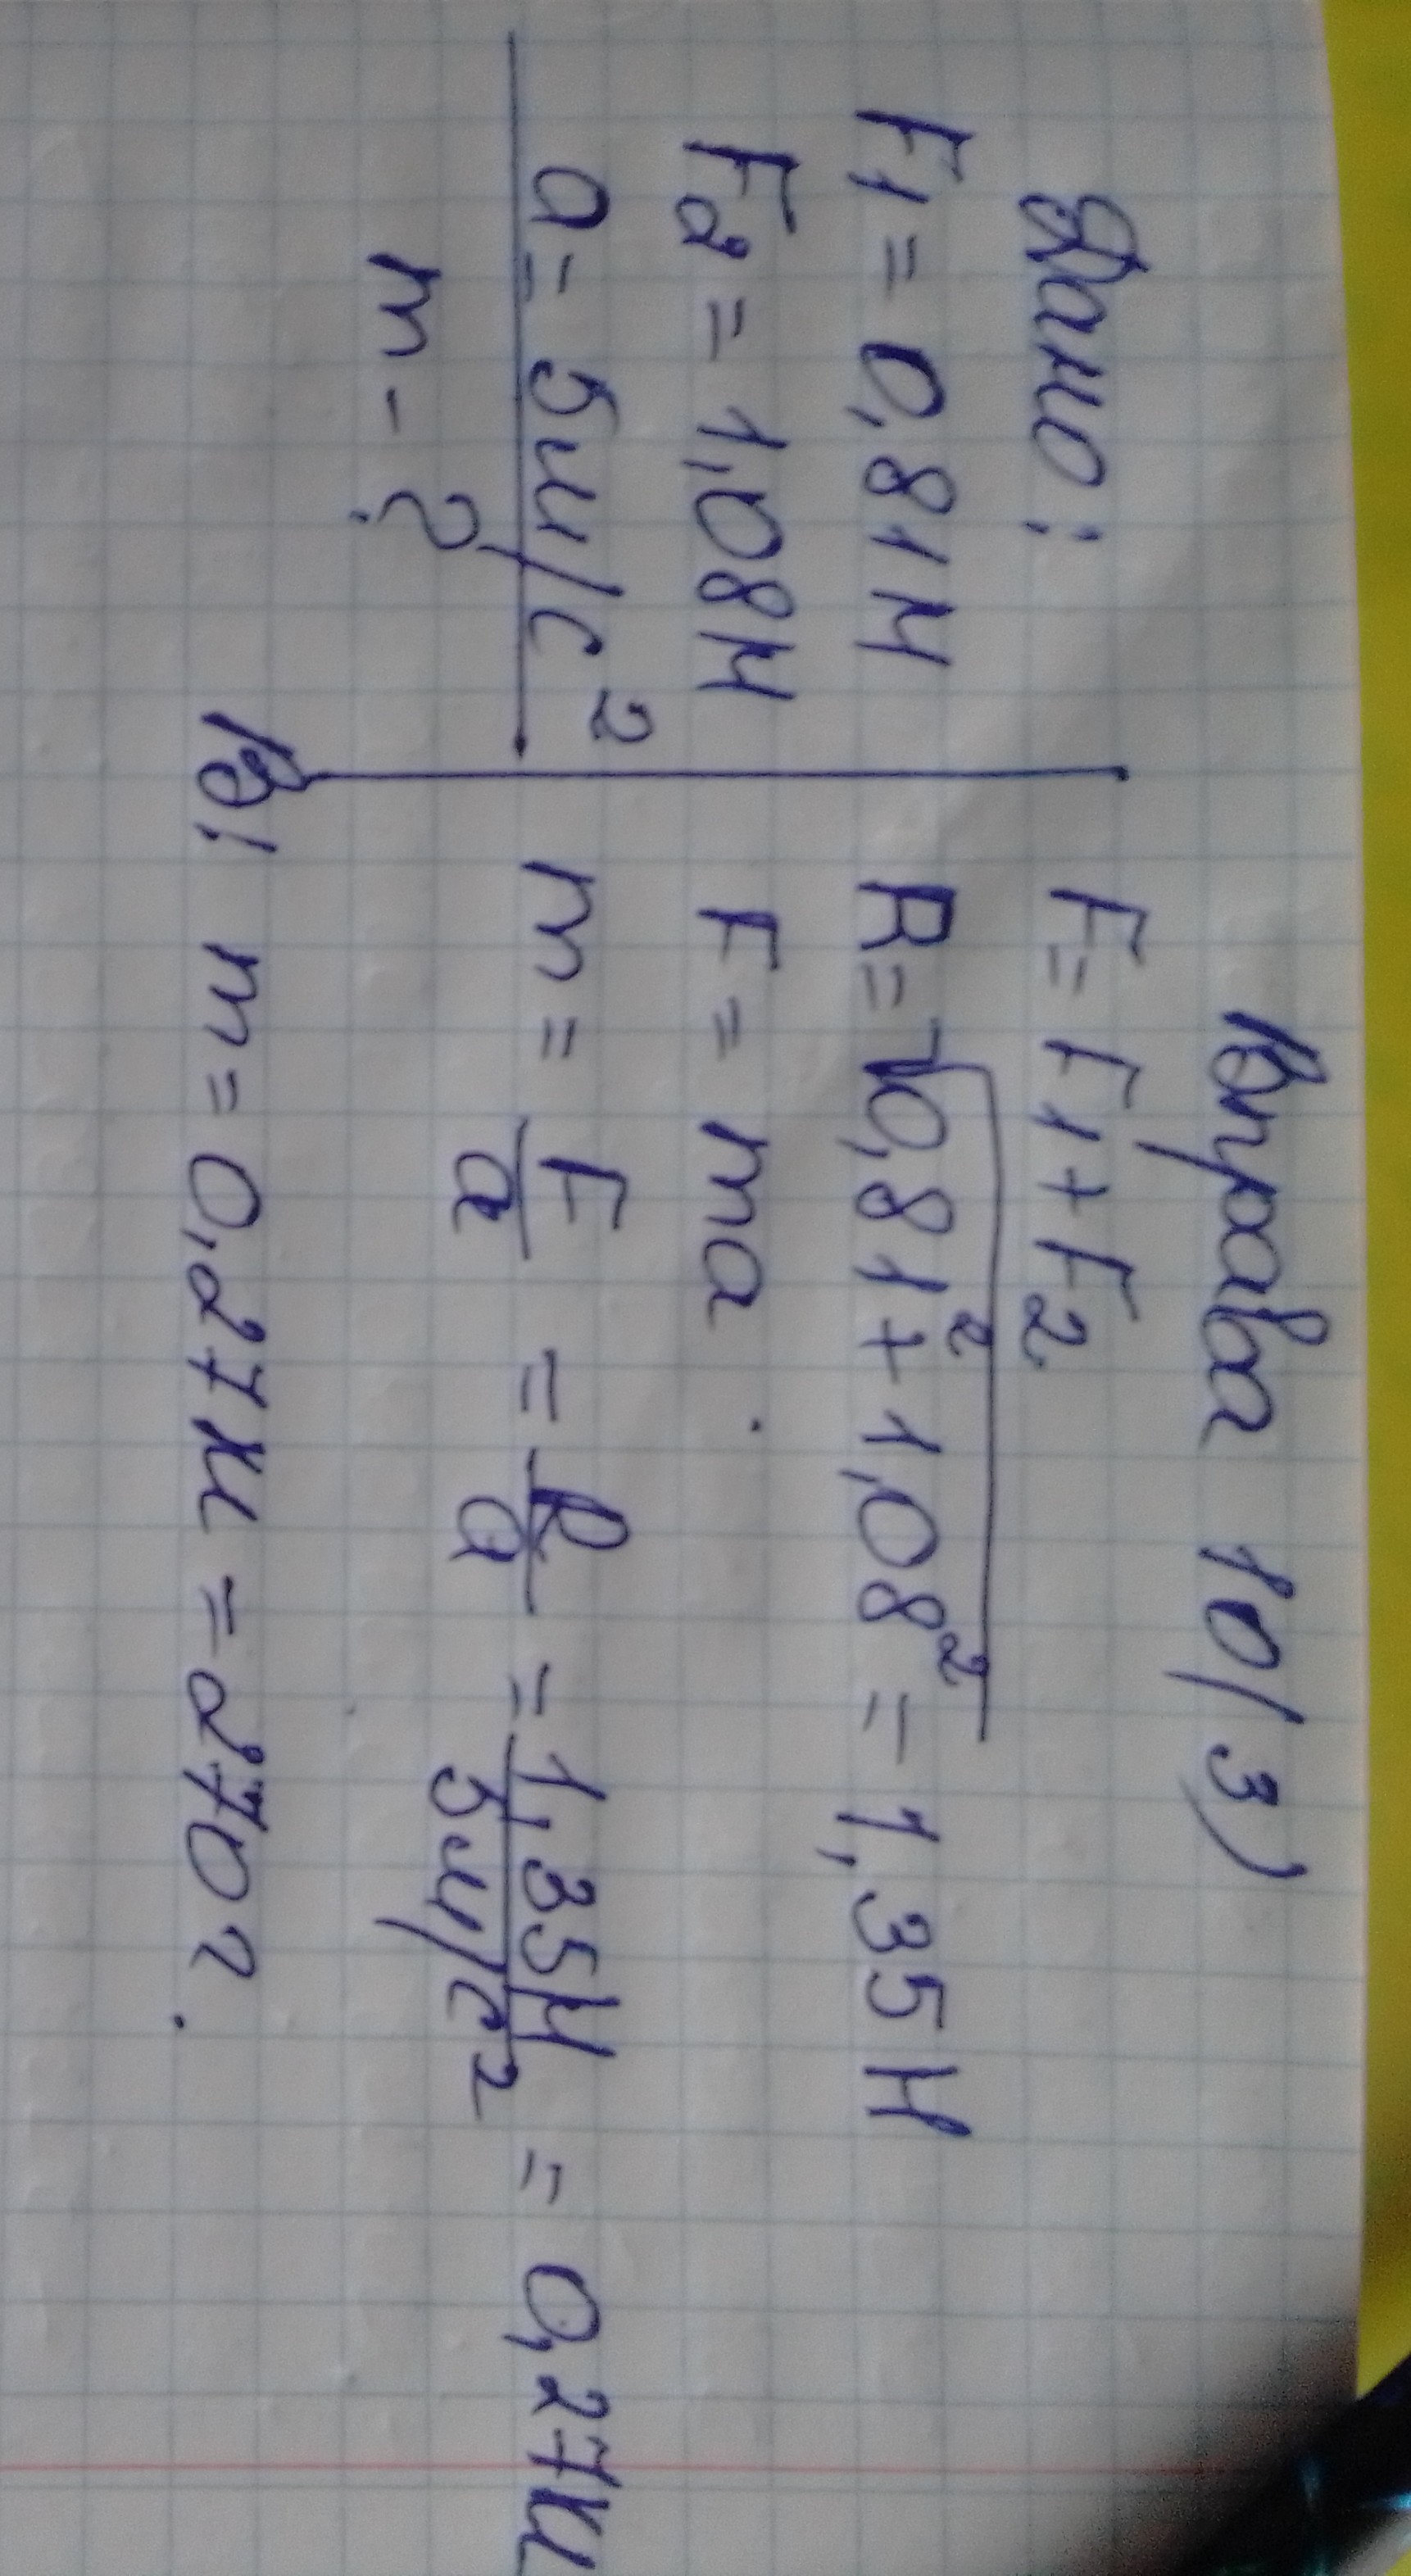 Вправа 10(3)
Дано:
F1 = 0,81 Н
F2 = 1,08 Н
a = 5 м/с²
m - ?
F = F1 + F2
R = √0,81² + 1,08² = 1,35 Н
F = ma
m = F/a = R/a = 1,35 Н / 5 м/с² = 0,27 кг
В: m = 0,27 кг = 270 г.